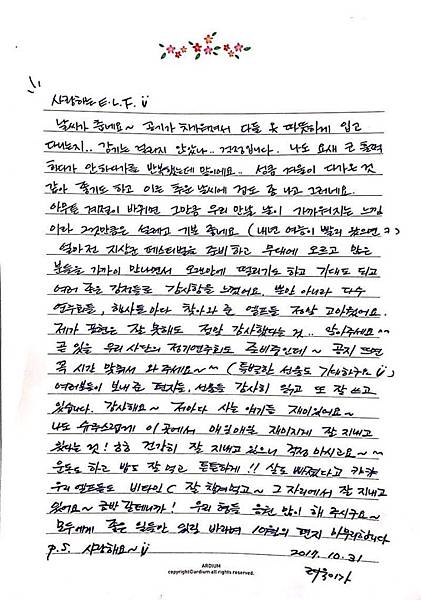 사랑하는 E.L.F. Ü
날씨가 춥네요~ 공기가 차가워져서 다들 옷 따뜻하게 입고
다니는지.. 감기는 걸리지 않았나.. 걱정입니다. 나도 요새
하다가 안하다가를 반복했는데 말이에요.. 성큼 겨울이 다가온 것
같아 좋기도 하고 이른 추운 날씨에 겁도 좀 나고 그러네요.
아무튼 계절이 바뀌면 그만큼 우리 만날 날이 가까워지는 느낌
이라 그것만큼은 설레고 기분 좋네요 (내년 여름이 빨리 왔으면 ㅋ)
얼마전 지상군 페스티벌을 준비하고 무대에 오르고 많은
분들을 가까이 만나면서 오랜만에 떨리기도 하고 기대도 되고
여러 좋은 감정들로 감사함을 느꼈어요. 뿐만 아니라 다수
연주회들, 행사들마다 찾아와 준 엘프들 정말 고마웠어요.
제가 표현은 잘 못해도 정말 감사했다는 것.. 알아주세요^^
곧 있을 우리 사단의 정기연주회도 준비중인데~ 공지 뜨면
꼭 시간 맞춰서 와 주세요~^^ (특별한 선물도 기대하구요 Ü)
여러분들이 보내 준 편지들, 선물들 감사히 읽고 또 잘 쓰고
있습니다. 감사해요~ 저마다 사는 얘기들 재미있어요~
나도 수수스럽게 이 곳에서 매일매일 재미지게 잘 지내고
있다는 것! 하하 건강히 잘 지내고 있으니 걱정 마시라요~~
운동도 하고 밥도 잘 먹고 튼튼하게!! 살도 빠졌다고 카카
우리 엘프들도 비타민 C 잘 챙겨먹고~ 그 자리에서 잘 지내고
있어요~ 금방 갈테니까! 우리 형들 응원 많이 해 주시구요~
모두에게 좋은 일들만 있길 바라며 10월의 편지 마무리합니다
P.S. 사랑해요~ Ü
2017. 10. 31
려욱이가
ARDIUM
copyright©ardium all rights reserved.